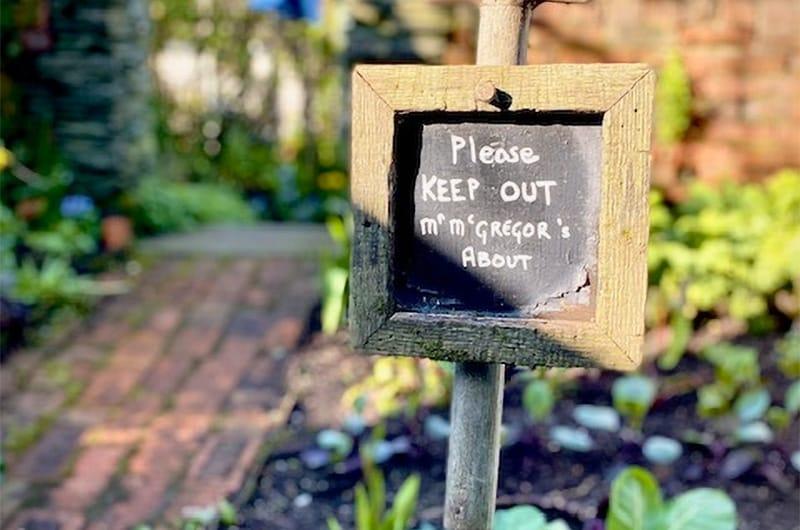 Please
KEEP OUT
Mr McGREGOR's
ABOUT